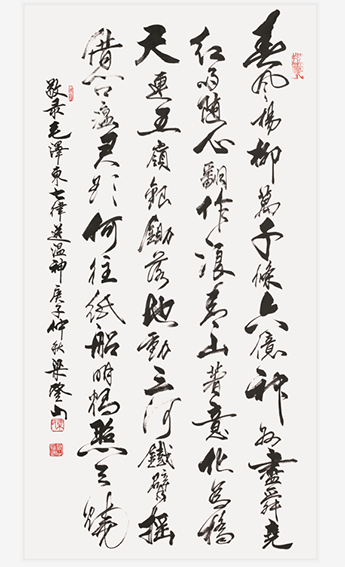 春風楊柳萬千條六億神州盡舜堯
紅雨隨心翻作浪青山着意化為橋
天連五嶺銀鋤落地動三河鐵臂摇
借問瘟君欲何往紙船明燭照天燒
敬录毛澤東七律送瘟神庚子仲秋梁登山